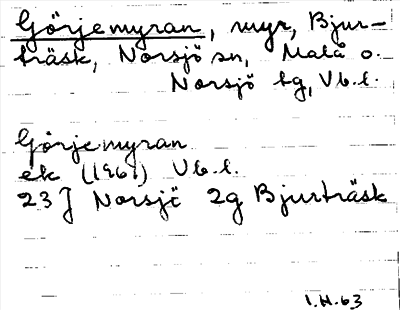 Görjemyran, myr, Bjur-
träsk, Norsjö sn, Malå o.
Norsjö tg, Vb.l.
Görjemyran
ek (1961) Vb.l.
23J Norsjö 2g Bjurträsk
I.H.63